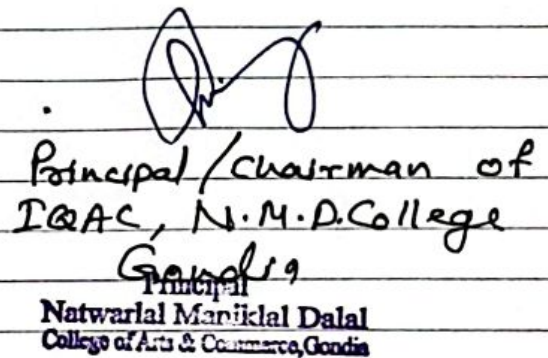 Principal/Chairman of
IQAC, N.M.D.College
Gondia
Principal
Natwarlal Maniklal Dalal
College of Arts & Commerce, Gondia